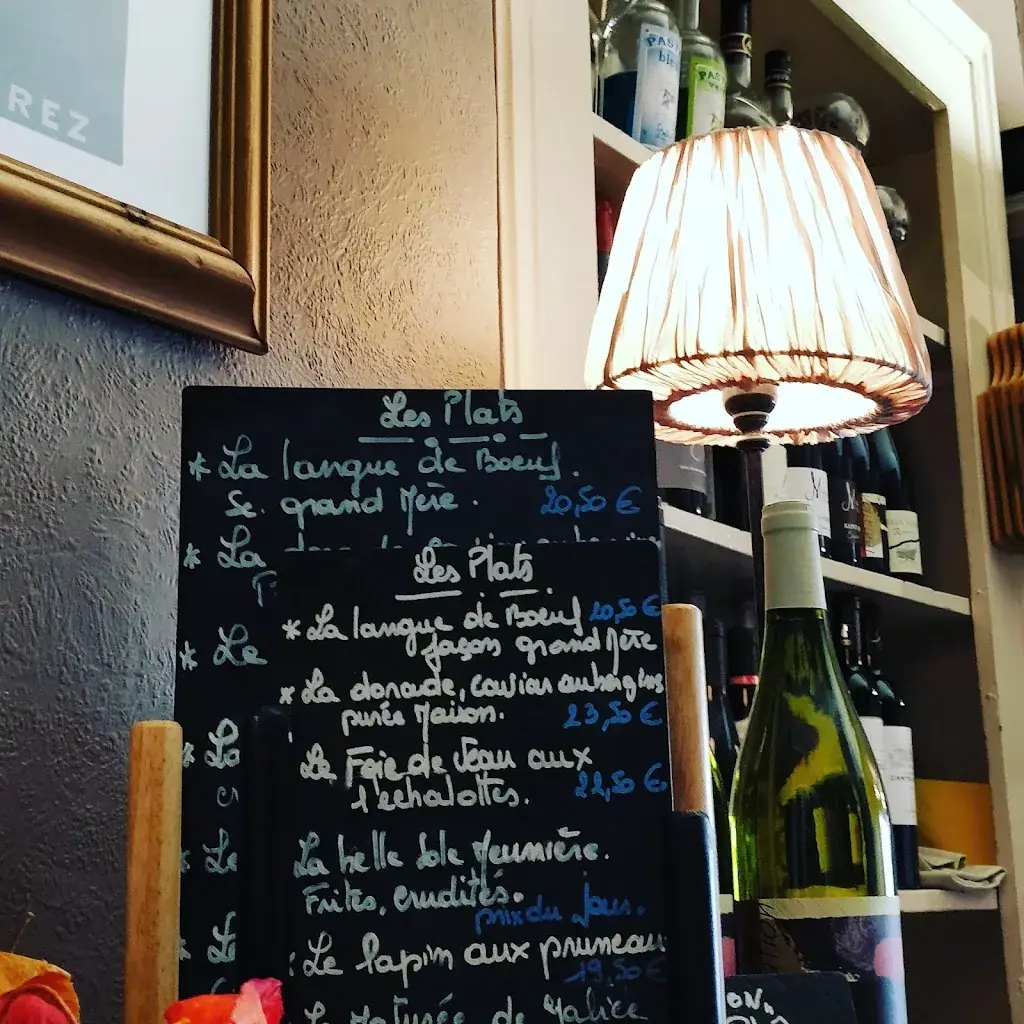 REZ
PAS
bl
PAS
Les Plats
* La langue de Boeuf.
Sc. grand Mère. 20,50 €
* La
* Le
* La
* Le
* Le
Les Plats
* La langue de Boeuf 20,50 €
façon grand Mère
* La dorade, caviar aubergines
purée Maison. 23,50 €
Le Foie de Veau aux
l'echalottes. 22,50 €
La belle Sole Meunière.
Frites, crudités.
prix du jour.
Le lapin aux pruneau
19,50 €
La Maturée de Galice
ON